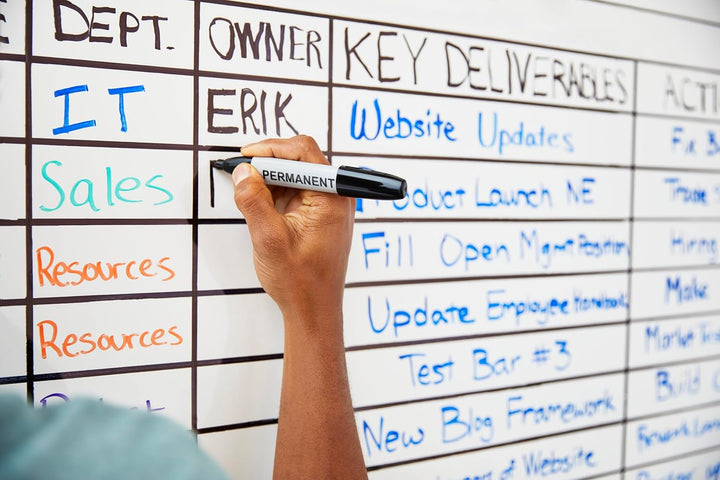 DEPT. OWNER KEY DELIVERABLES ACTI
IT ERIK Website Updates Fix B
Sales Product Launch NE
PERMANENT
Resources Fill Open Mgmt Position Hiring
Resources Update Employee Handbook Make
Test Bar #3 Market
New Blog Framework Build
of Website